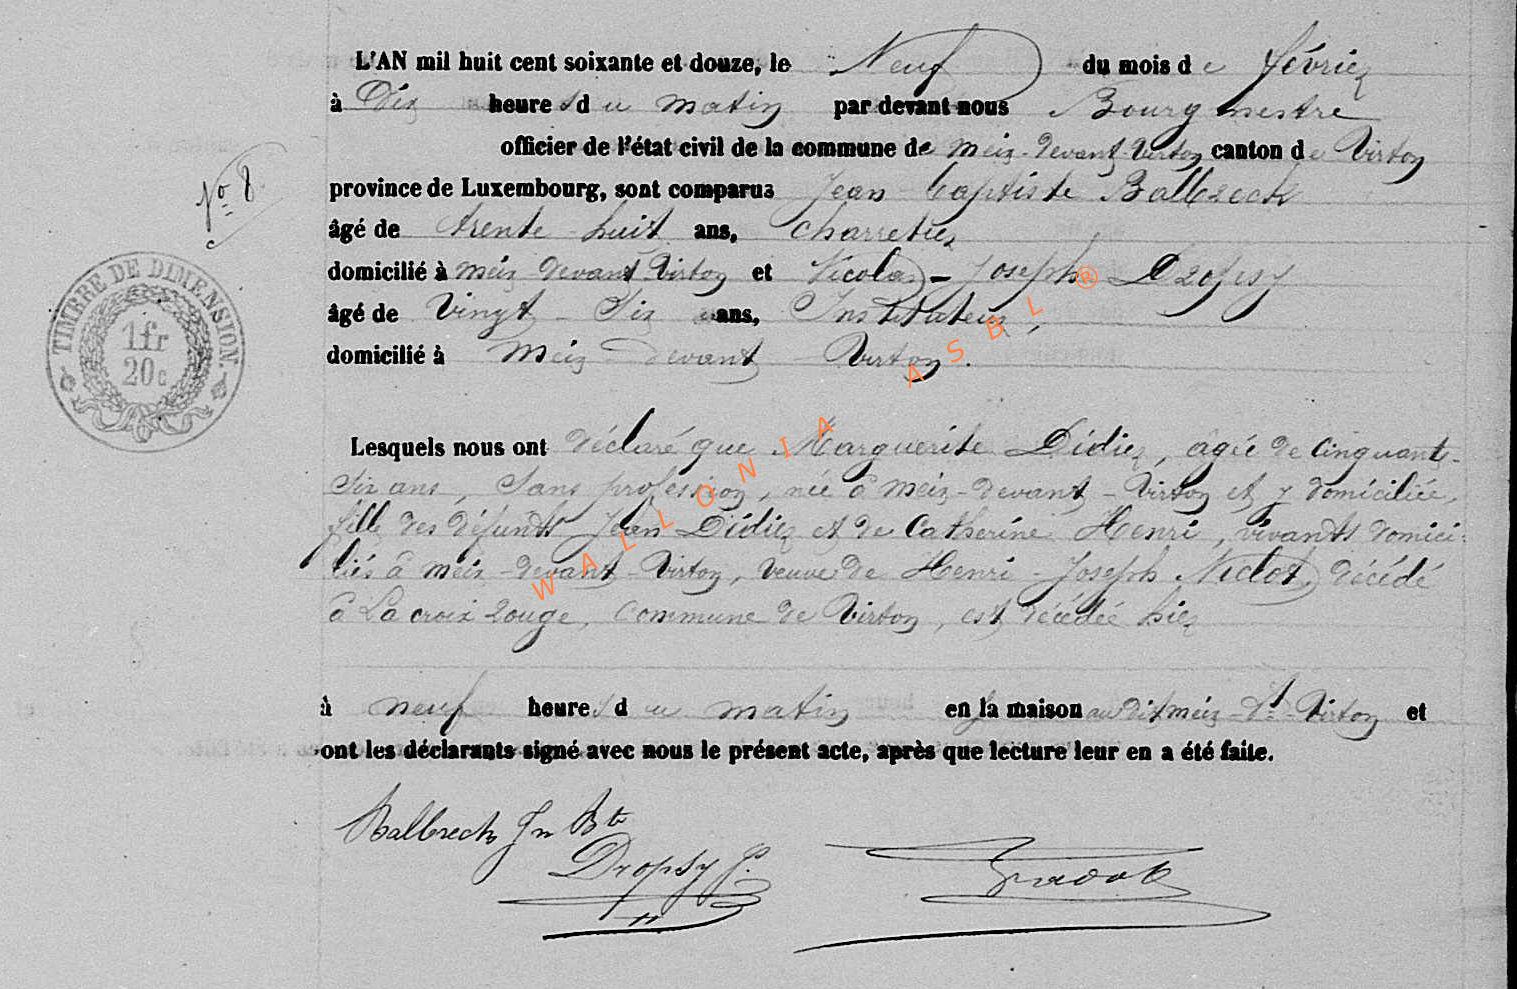 L'AN mil huit cent soixante et douze, le Neuf du mois de février
à Dix heures du matin par devant nous Bourgmestre
officier de l'état civil de la commune de Meix-devant-Virton canton de Virton
province de Luxembourg, sont comparus Jean-Baptiste Balbreck
N° 8
âgé de trente-huit ans, charretier
domicilié à Meix devant Virton et Nicolas-Joseph Dropsy
âgé de Vingt-Six ans, Instituteur,
domicilié à Meix-devant-Virton.
TIMBRE DE DIMENSION.
1fr
20c
Lesquels nous ont déclaré que Marguerite Didier, âgée de Cinquante-
Six ans, Sans profession, née à Meix-devant-Virton et y domiciliée,
fille des défunts Jean Didier et de Catherine Henri, vivants domici-
liés à Meix-devant-Virton, veuve de Henri-Joseph Niclot, décédé
à La croix rouge, Commune de Virton, est décédée hier
à neuf heures du matin en sa maison au dit Meix-dt-Virton et
ont les déclarants signé avec nous le présent acte, après que lecture leur en a été faite.
Balbreck Jn Bte
Dropsy J.
WALLONIA ASBL ®